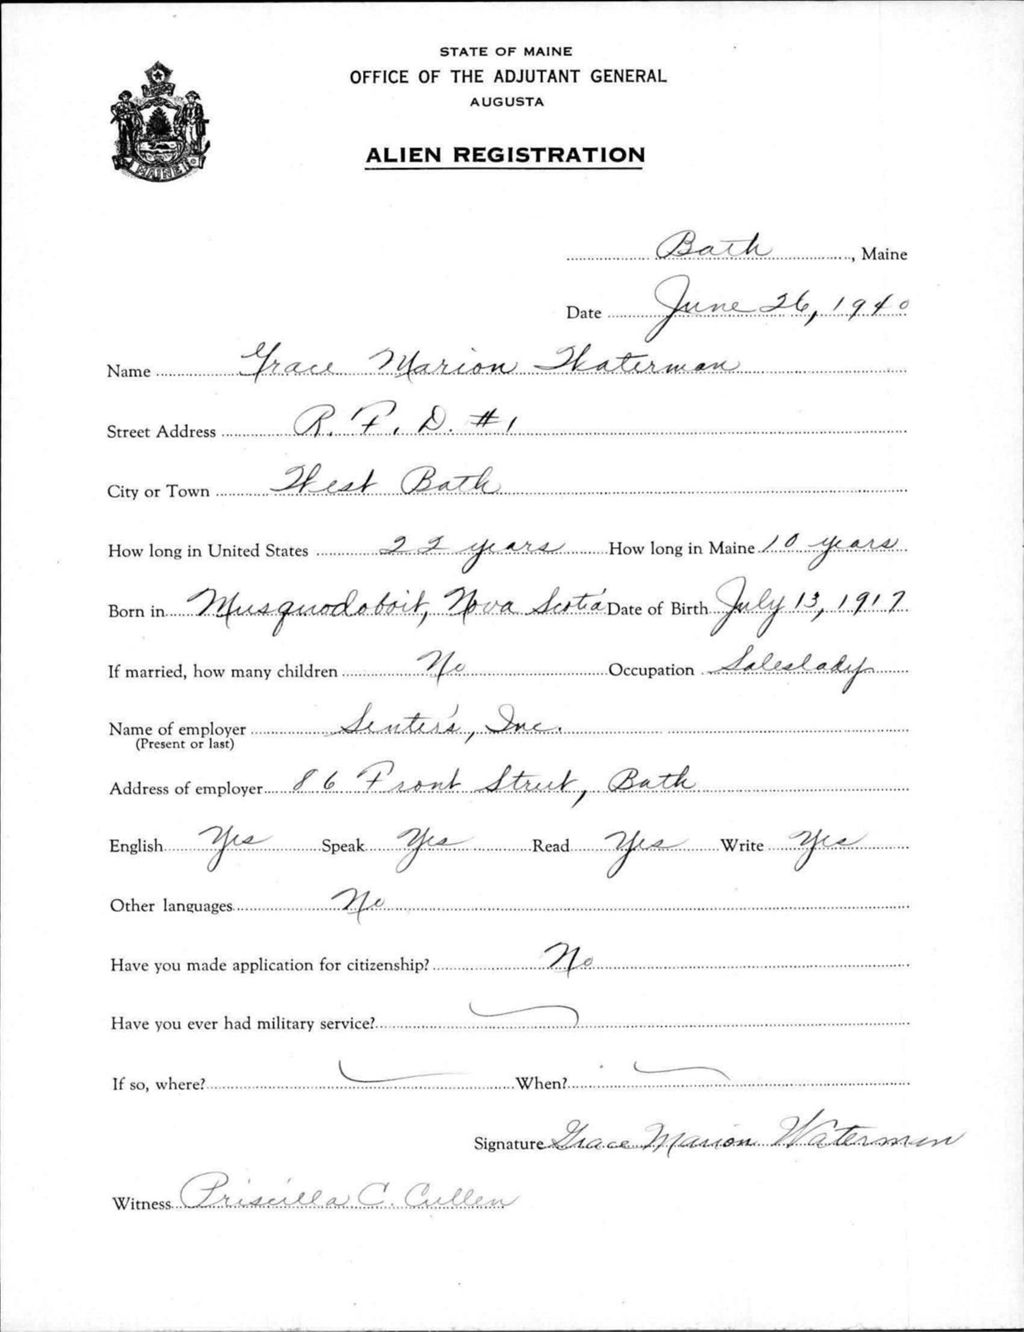 STATE OF MAINE
OFFICE OF THE ADJUTANT GENERAL
AUGUSTA
ALIEN REGISTRATION
MAINE
Bath, Maine
Date June 26, 1940
Name Grace Marion Waterman
Street Address R. F. D. #1
City or Town West Bath
How long in United States 22 years How long in Maine 10 years
Born in Musquodoboit, Nova Scotia Date of Birth July 13, 1917
If married, how many children No Occupation Saleslady
Name of employer Senter's, Inc.
(Present or last)
Address of employer 86 Front Street, Bath
English Yes Speak Yes Read Yes Write Yes
Other languages No
Have you made application for citizenship? No
Have you ever had military service?
If so, where? When?
Signature Grace Marion Waterman
Witness Priscilla C. Cullen